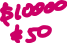 $10000
$50